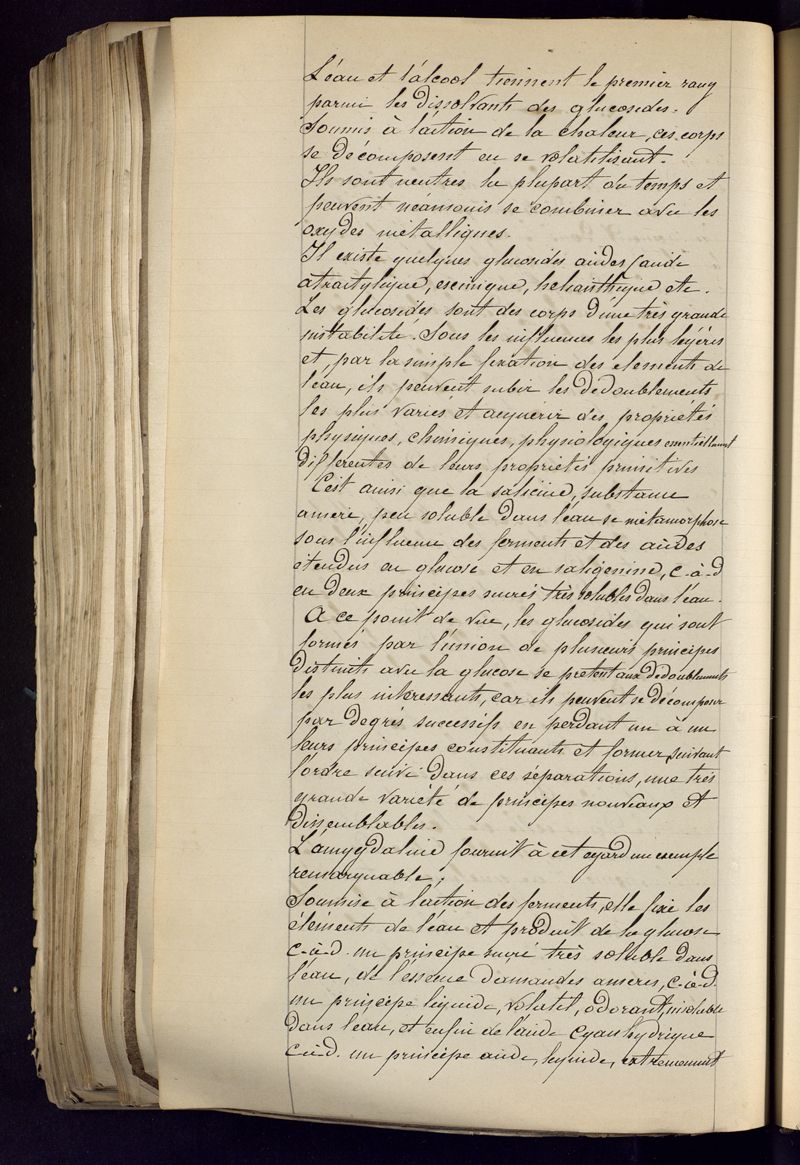 L'eau et l'álcool tiennent le premier rang
parmi les dissolvants des glucosides.
Soumis à l'action de la chaleur, ces corps
se décomposent en se volatilisant.
Ils sont neutres la plupart du temps et
peuvent néamouis se combiner avec les
oxydes métalliques.
Il existe quelques glucosides aides (auide
atractylique, escinique, helianthique etc.
Les glucosides sont des corps d'une très grande
instabilité. Sous les influences les plus légères
et, par la simple fixation des elements de
l'eau, ils peuvent subir les dédoublements
les plus variés et acquerir des propriétés
physiques, chimiques, physiologiques essentiellement
differentes de leurs propriétés primitives
C'est ainsi que la salicine, substance
amère, peu soluble dans l'eau se métamorphose
sous l'influence des ferments et des acides
étendus en glucose et en saligenine, c-à-d
en deux principes sucrés très solubles dans l'eau.
A ce point de vue, les glucosides qui sont
formés par l'union de plusieurs principes
distincts avec la glucose se pretent aux dedoublements
les plus interessants, car ils peuvent se décomposer
par degrés successifs en perdant un à un
leurs principes constituants et former, suivant
l'ordre suivi dans ces séparations, une très
grande variété de principes nouveaux et
dissemblables.
L'amygdaline fournit à cet egard un exemple
remarquable;
Soumise à l'action des ferments, elle fixe les
éléments de l'eau et produit de la glucose
c-à-d. un principe sucré très soluble dans
l'eau, de l'essence d'amandes amères, c-à-d.
un principe liquide, volatil, odorant, insoluble
dans l'eau, et enfin de l'acide cyanhydrique
c-à-d. un principe acide, liquide, extremement